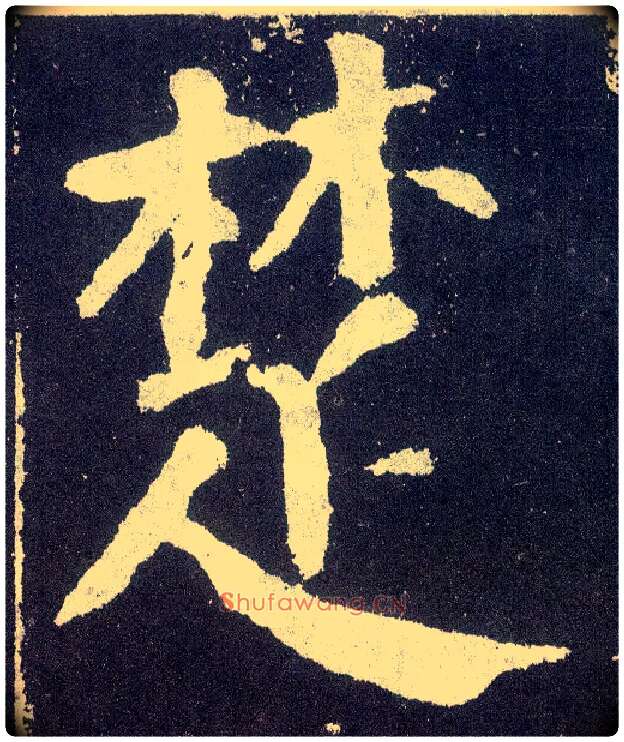 楚
Shufawang.CN